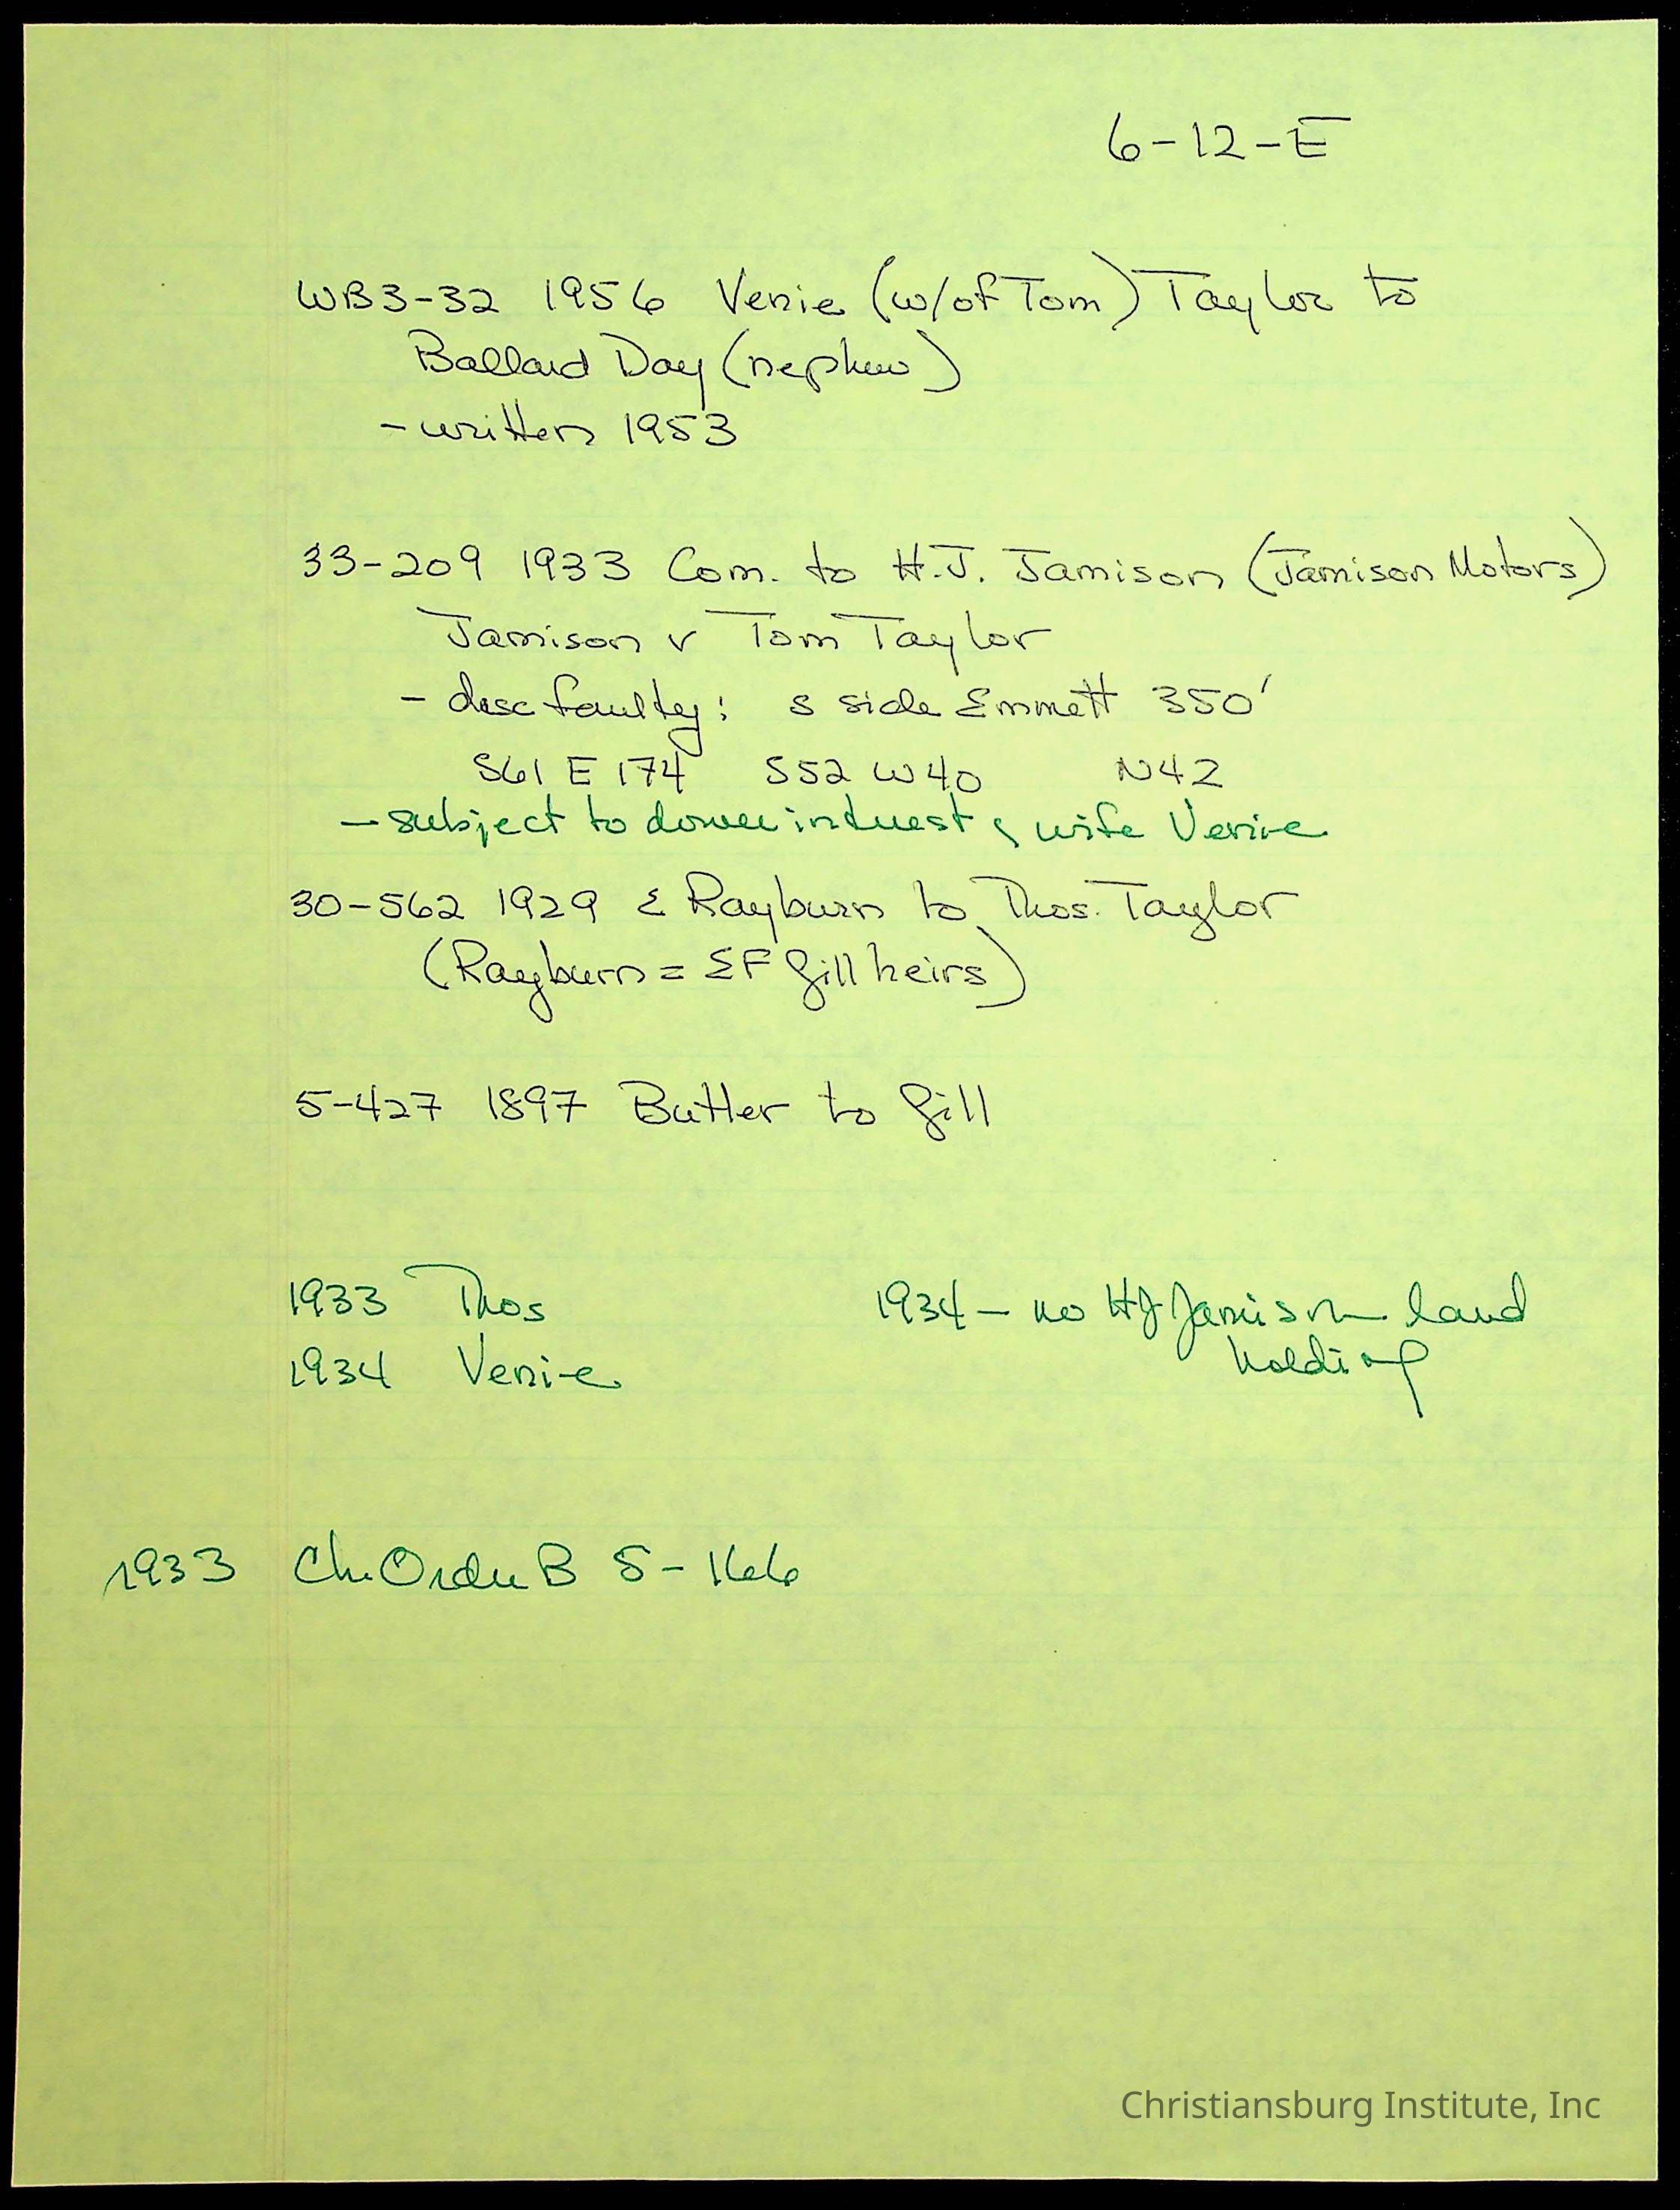 6-12-E
WB3-32 1956 Venie (w/of Tom) Taylor to
Ballard Day (nephew)
- written 1953
33-209 1933 Com. to H.J. Jamison (Jamison Motors)
Jamison v Tom Taylor
- desc faulty: s side Emmett 350'
S61 E 174 S52 W40 N42
- subject to dower interest wife Venie
30-562 1929 E Rayburn to Thos. Taylor
(Rayburn = EF Gill heirs)
5-427 1897 Butler to Gill
1933 Thos 1934 - no HJ Jamison land
1934 Venie holding
1933 Ch. Order B 5-166
Christiansburg Institute, Inc